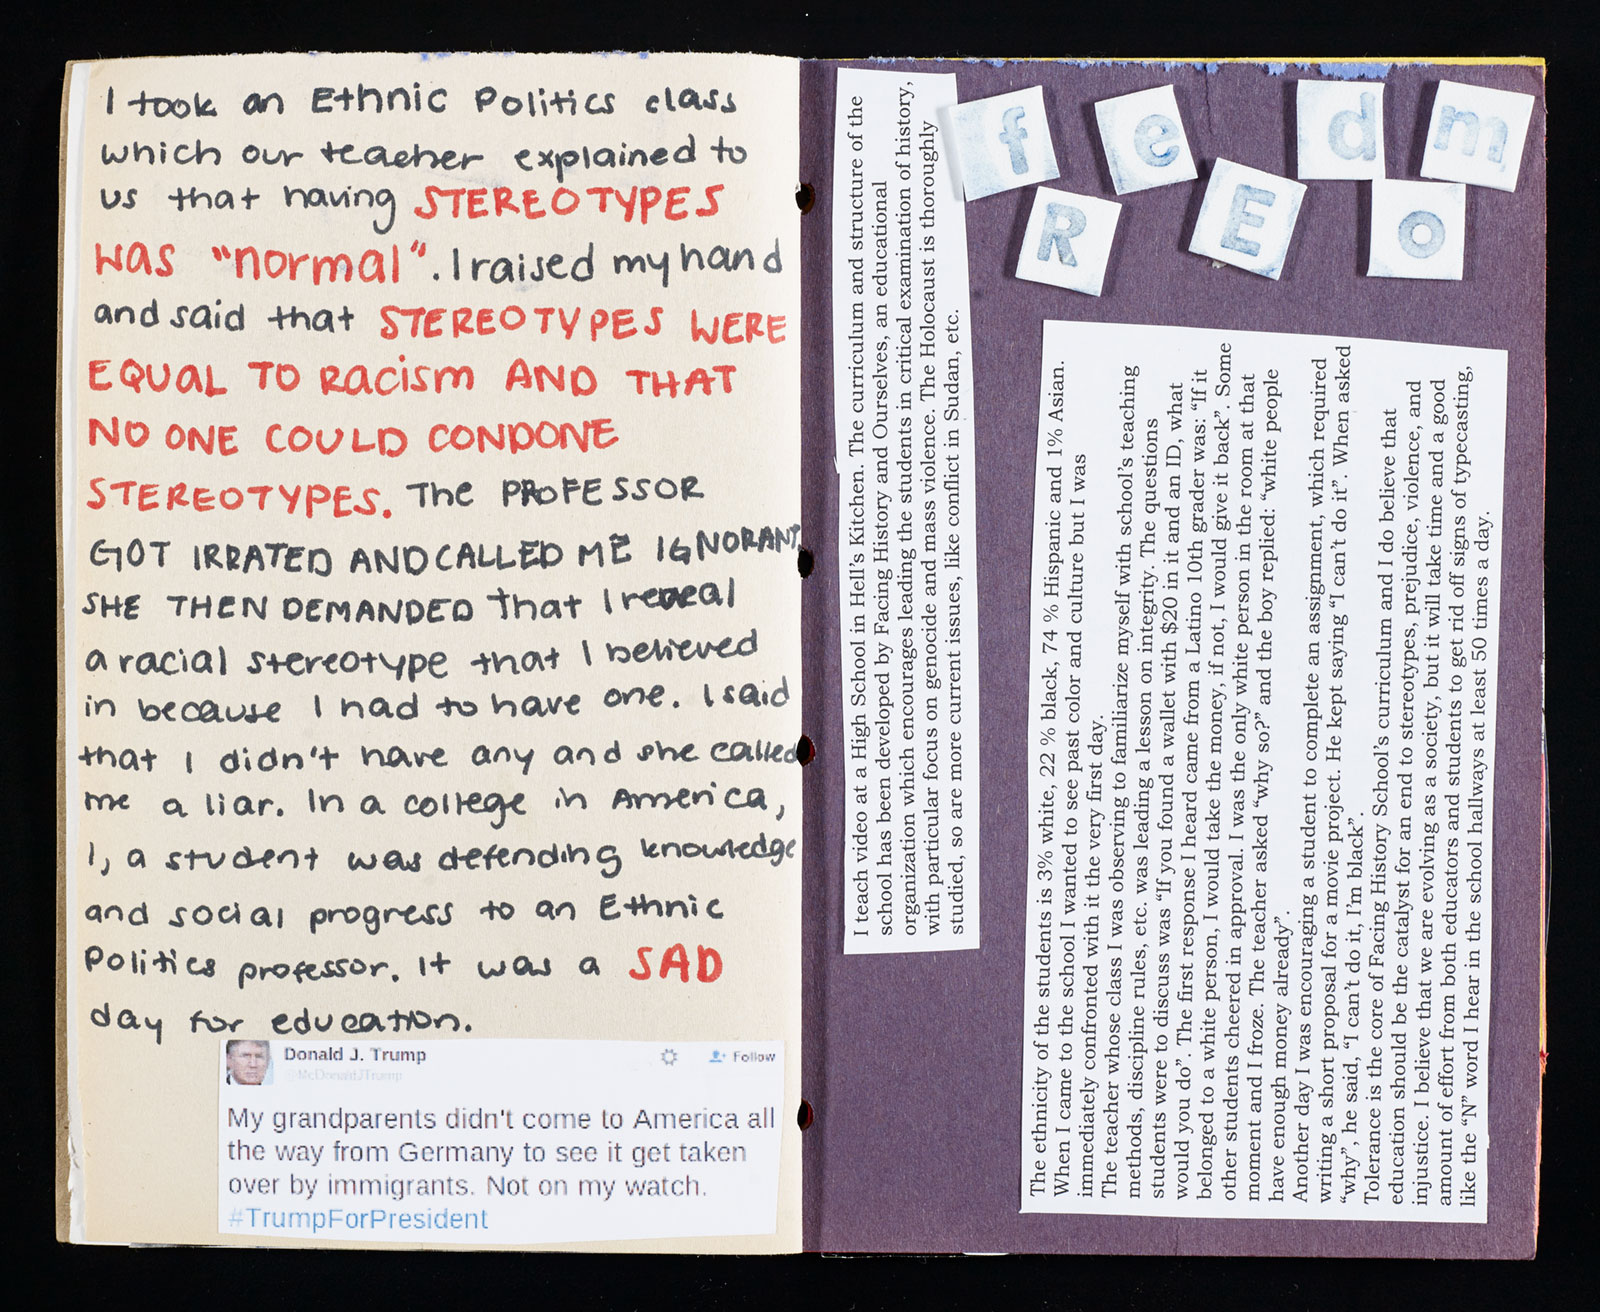 I took an Ethnic Politics class
which our teacher explained to
us that having STEREOTYPES
was "normal". I raised my hand
and said that STEREOTYPES WERE
EQUAL TO Racism AND THAT
NO ONE COULD CONDONE
STEREOTYPES. The PROFESSOR
GOT IRRATED AND CALLED ME IGNORANT.
SHE THEN DEMANDED that I reveal
a racial stereotype that I believed
in because I had to have one. I said
that I didn't have any and she called
me a liar. In a college in America,
I, a student was defending knowledge
and social progress to an Ethnic
Politics professor. It was a SAD
day for education.
Donald J. Trump
@McDonaldJTrump
Follow
My grandparents didn't come to America all
the way from Germany to see it get taken
over by immigrants. Not on my watch.
#TrumpForPresident
f e d m
R E o
I teach video at a High School in Hell's Kitchen. The curriculum and structure of the
school has been developed by Facing History and Ourselves, an educational
organization which encourages leading the students in critical examination of history,
with particular focus on genocide and mass violence. The Holocaust is thoroughly
studied, so are more current issues, like conflict in Sudan, etc.
The ethnicity of the students is 3% white, 22 % black, 74 % Hispanic and 1% Asian.
When I came to the school I wanted to see past color and culture but I was
immediately confronted with it the very first day.
The teacher whose class I was observing to familiarize myself with school's teaching
methods, discipline rules, etc. was leading a lesson on integrity. The questions
students were to discuss was "If you found a wallet with $20 in it and an ID, what
would you do". The first response I heard came from a Latino 10th grader was: "If it
belonged to a white person, I would take the money, if not, I would give it back". Some
other students cheered in approval. I was the only white person in the room at that
moment and I froze. The teacher asked "why so?" and the boy replied: "white people
have enough money already".
Another day I was encouraging a student to complete an assignment, which required
writing a short proposal for a movie project. He kept saying "I can't do it". When asked
"why", he said, "I can't do it, I'm black".
Tolerance is the core of Facing History School's curriculum and I do believe that
education should be the catalyst for an end to stereotypes, prejudice, violence, and
injustice. I believe that we are evolving as a society, but it will take time and a good
amount of effort from both educators and students to get rid off signs of typecasting,
like the "N" word I hear in the school hallways at least 50 times a day.